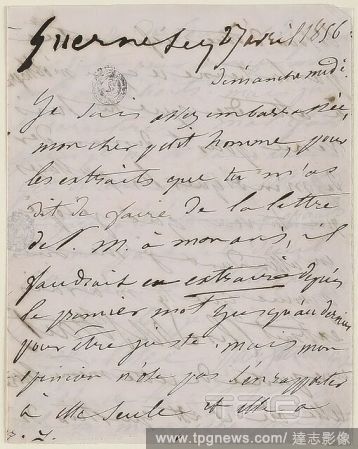 Guernesey 27 avril 1856
Dimanche midi
Je suis assez embarrassée,
mon cher petit homme, pour
les extraits que tu m'as
dit de faire de la lettre
de P. M. à mon avis, il
faudrait en extraire depuis
le premier mot jusqu'au dernier
pour être juste. mais mon
opinion n'ose pas s'en rapporter
à elle seule et elle a
TPG
www.tpgnews.com/達志影像